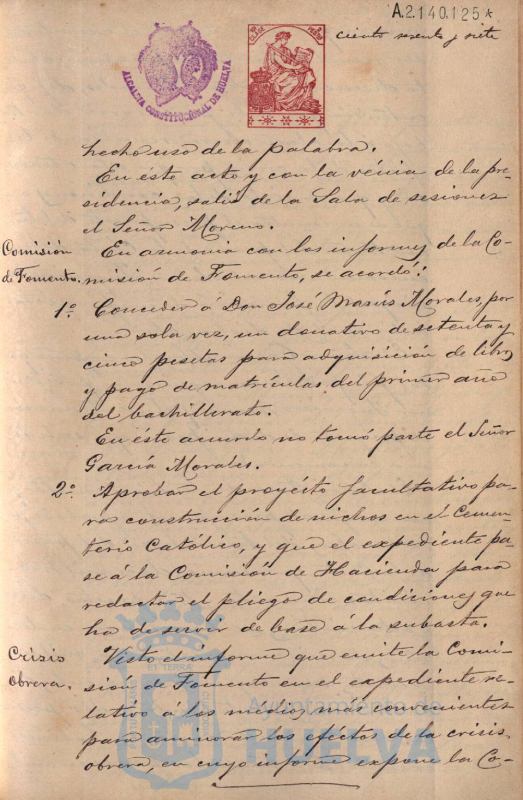 A.2.140.125*
ciento sesenta y siete
ALCALDIA CONSTITUCIONAL DE HUELVA
hecho uso de la palabra.
En éste acto y con la vénia de la pre-
sidencia, salió de la Sala de sesiones
el Señor Moreno.
Comisión
de Fomento.
En armonia con los informes de la Co-
misión de Fomento, se acordó:
1º. Conceder á Don José Marús Morales, por
una sola vez, un donativo de setenta y
cinco pesetas para adquisición de libros
y pago de matrículas del primer año
del bachillerato.
En éste acuerdo no tomó parte el Señor
García Morales.
2º. Aprobar el proyécto facultativo pa-
ra construcción de nichos en el Cemen-
terio Católico, y que el expediente pa-
se á la Comisión de Hacienda para
redactar el pliego de condiciones que
ha de servir de base á la subasta.
Crisis
obrera.
Visto el informe que emite la Comi-
sión de Fomento en el expediente re-
lativo á los medios más convenientes
para aminorar los efectos de la crisis
obrera, en cuyo informe expone la Co-
Ayuntamiento de
HUELVA